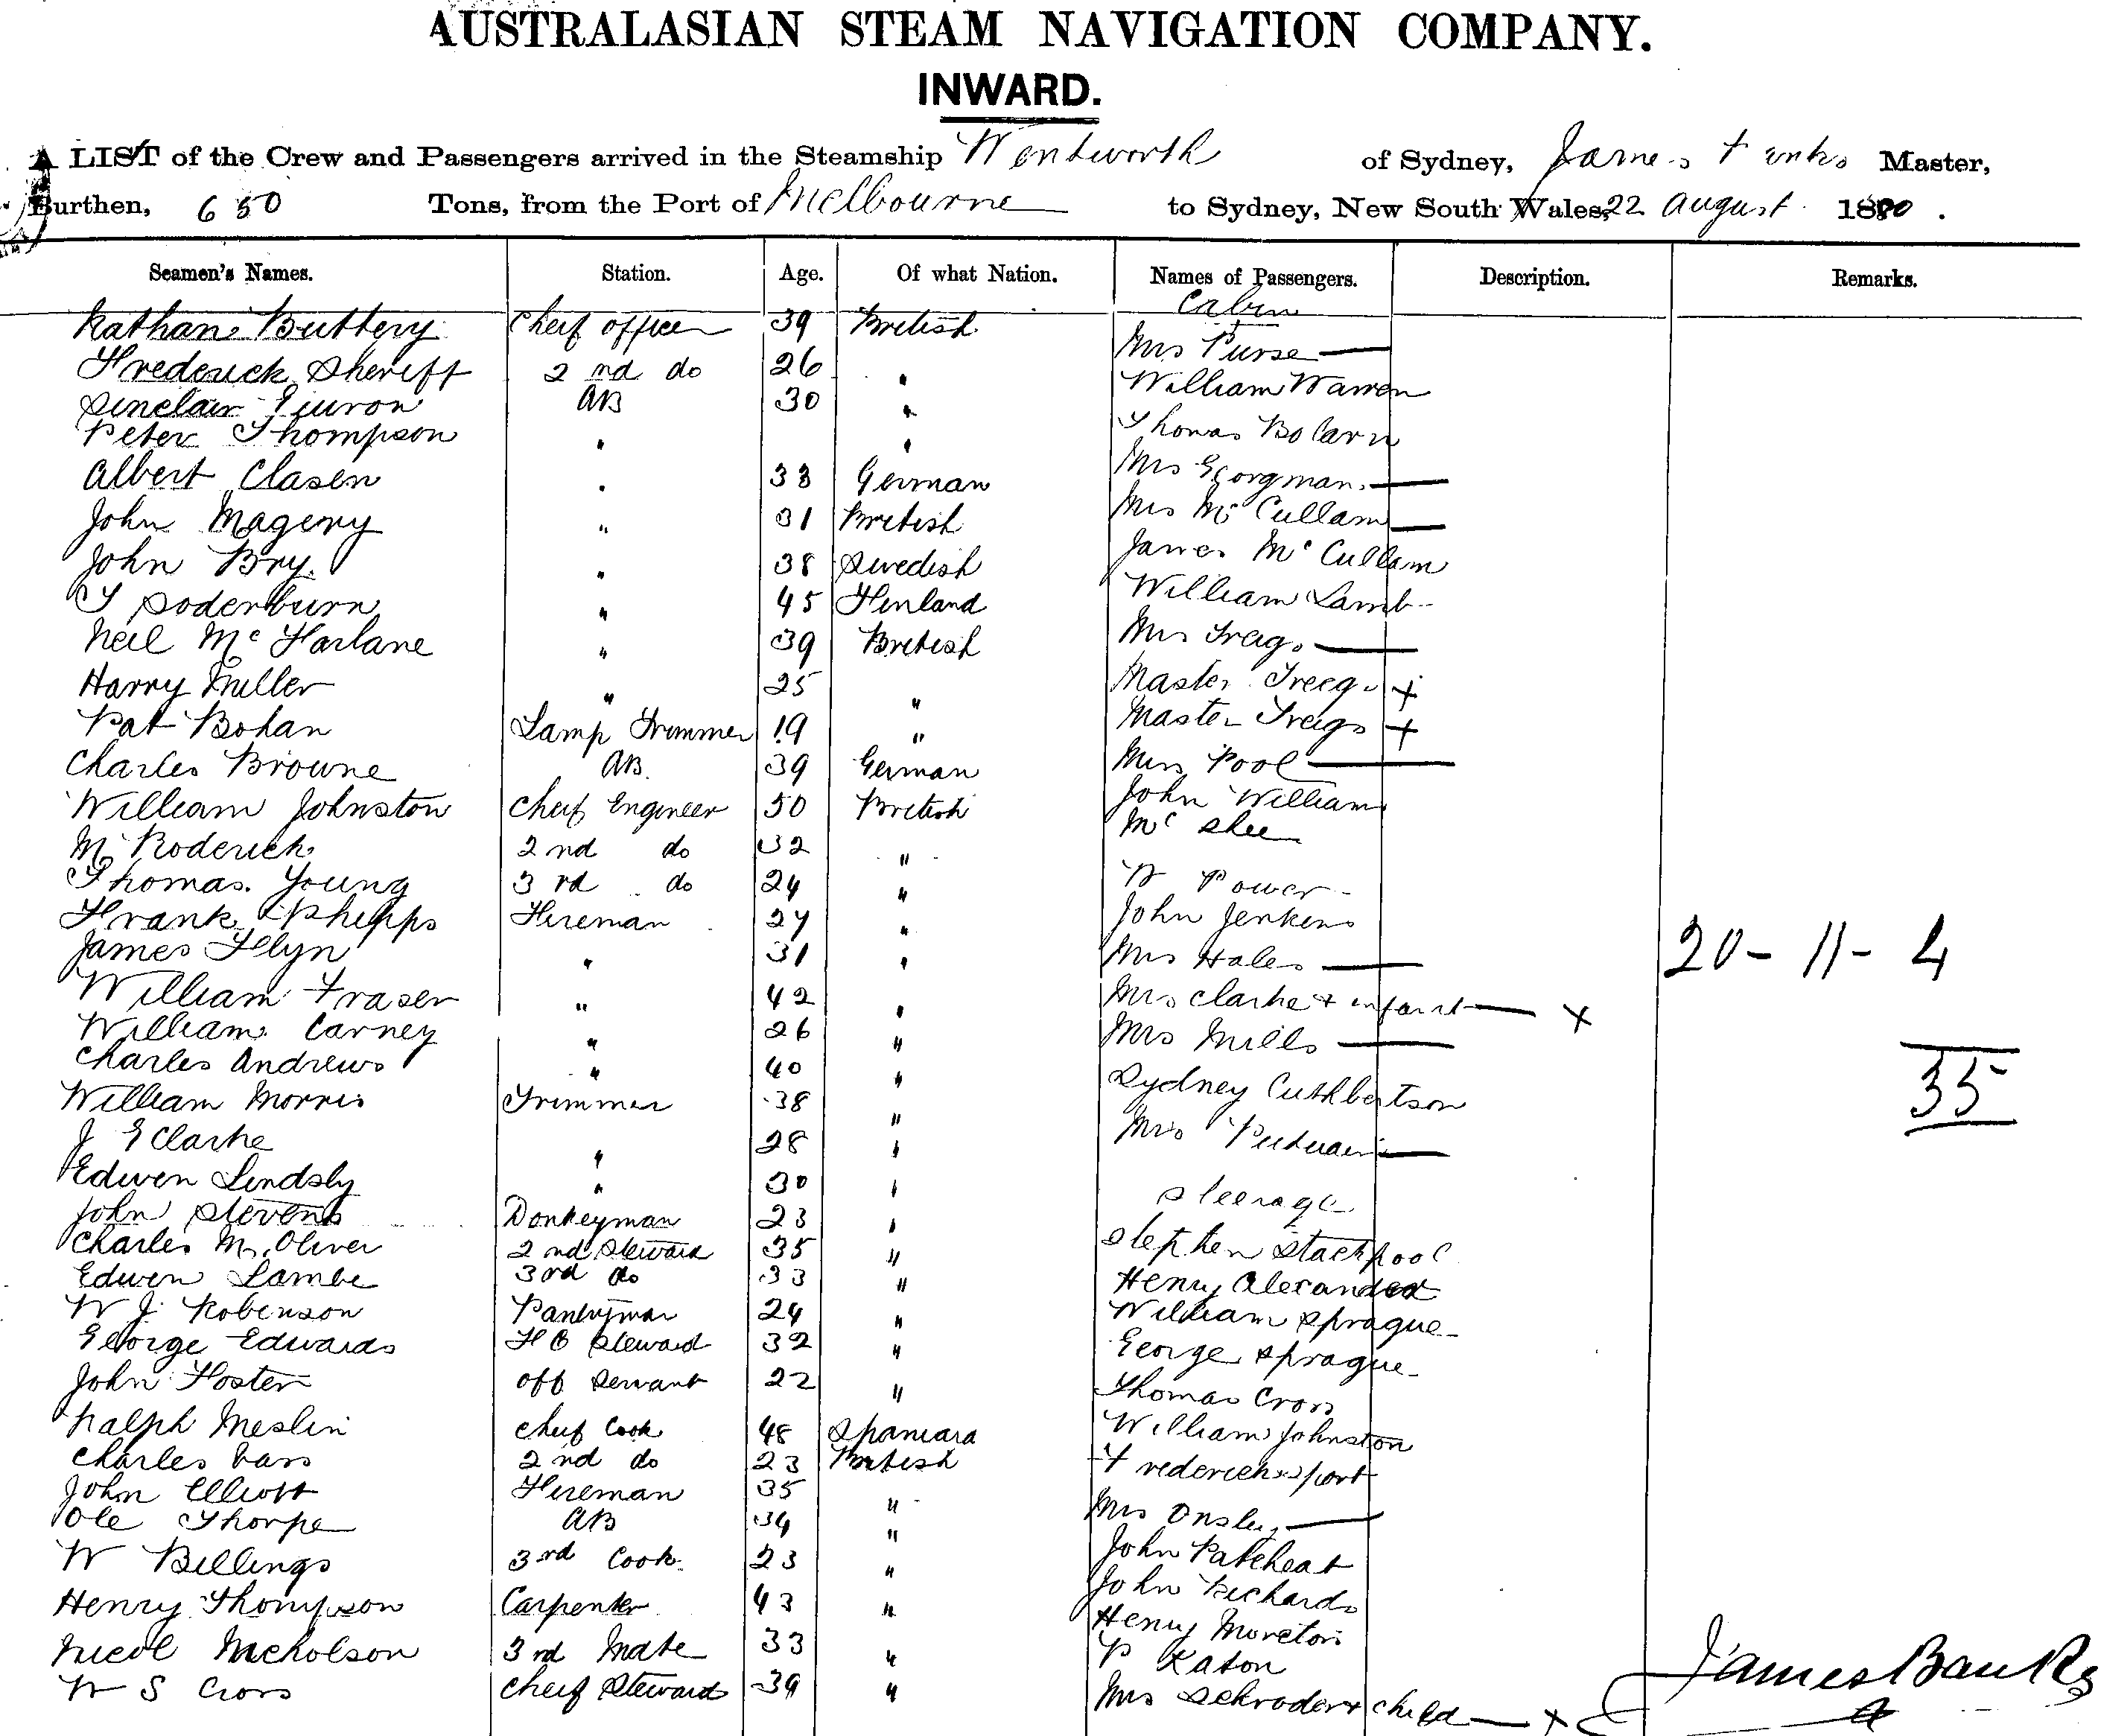 AUSTRALASIAN STEAM NAVIGATION COMPANY.
INWARD.
A LIST of the Crew and Passengers arrived in the Steamship Wentworth of Sydney, James Master,
Burthen, 650 Tons, from the Port of Melbourne to Sydney, New South Wales, 22 August 1880.
Seamen's Names. Station. Age. Of what Nation. Names of Passengers. Description. Remarks.
Cabin
Nathan Buttery Cheif officer 39 British
Mrs Purse —
Frederick Sheriff 2nd do 26 "
William Warren
Sinclair AB 30 "
Peter Thompson " "
Thomas
Albert Clasen " 33 German
Mrs —
John Magery " 31 British
Mrs McCullam —
John Bry " 38 Swedish
James McCullam
T Soderburn " 45 Finland
William Lamb
Neil McFarlane " 39 British
Mrs —
Harry Miller " 25 "
Master +
Pat Bohan Lamp Trimmer 19 "
Master +
Charles Browne AB. 39 German
Mrs Pool —
William Johnston Cheif Engineer 50 British
John William
McShee
M Roderick 2nd do 32 "
Thomas Young 3rd do 24 "
W Power
Frank Phipps Fireman 27 "
John Jenkins
James Flyn " 31 "
Mrs Hales —
20-11-4
William Fraser " 42 "
Mrs Clarke + infant — x
William Carney " 26 "
Mrs Mills —
Charles Andrews " 40 "
35
Sydney Cuthbertson
William Morris Trimmer 38 "
Mrs —
J E Clarke " 28 "
Edwen Lindsly " 30 "
Steerage
John Stevens Donkeyman 23 "
Charles M. Oliver 2nd Steward 35 "
Stephen Stackpool
Edwen Lambe 3rd do 33 "
Henry Alexander
W J Robinson Pantryman 24 "
William Sprague
George Edwards F C Steward 32 "
George Sprague
John Foster off Servant 22 "
Thomas Cross
Ralph Meslin cheif Cook 48 Spaniard
William Johnston
Charles Vass 2nd do 23 British
Frederick
John Elliott Fireman 35 "
Mrs Onsley —
Ole Thorpe AB 34 "
John
W Billings 3rd Cook 23 "
John Richards
Henry Thompson Carpenter 43 "
Henry Moreton
Nicol Nicholson 3rd Mate 33 "
P Eaton
James Banks
W S Cross Cheif Steward 39 "
Mrs Schroder + child — x